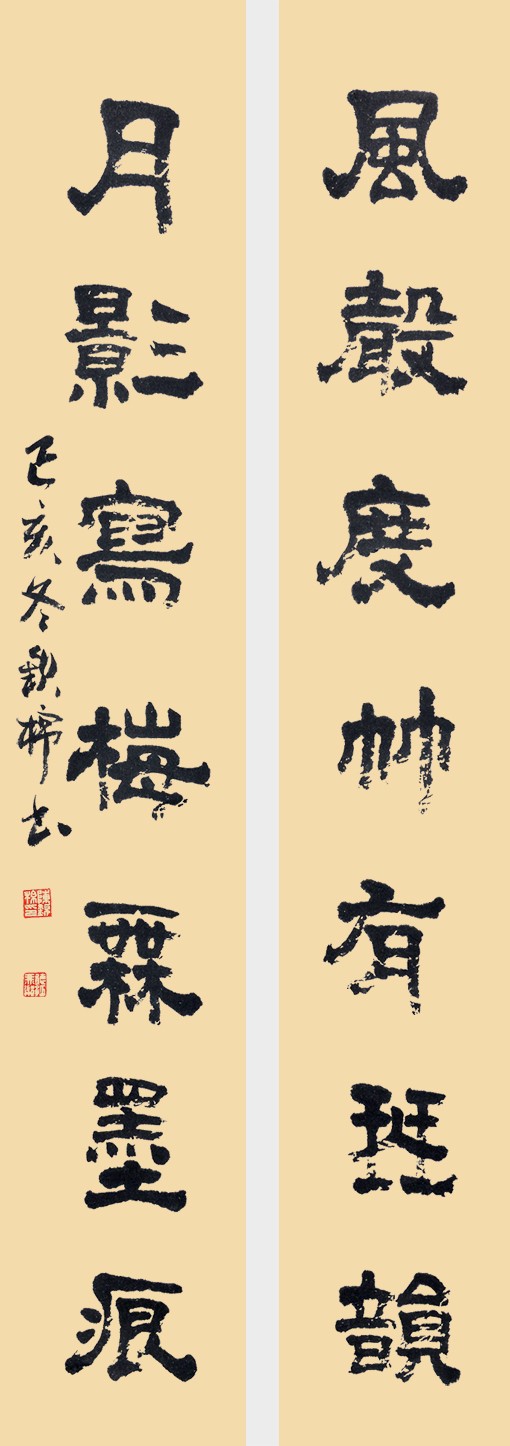 風聲度竹有琴韻
月影寫梅無墨痕
己亥冬書